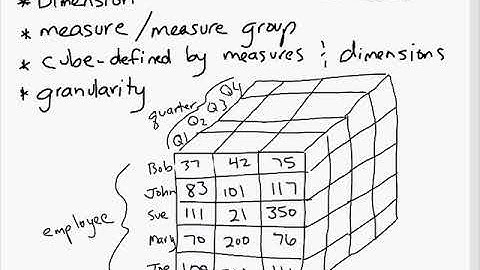 * Dimension
* measure / measure group
* cube-defined by measures & dimensions
* granularity
quarter
Q4
Q3
Q2
Q1
Bob 37 42 75
John 83 101 117
Sue 111 21 350
employee
Mary 70 200 76